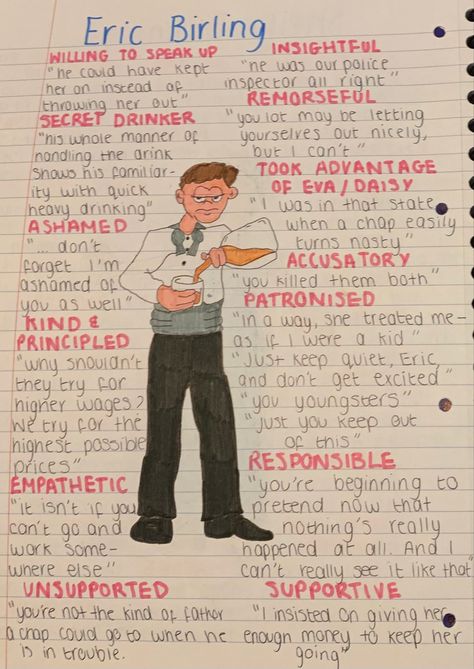 Eric Birling
WILLING TO SPEAK UP
"he could have kept
her on instead of
throwing her out"
SECRET DRINKER
"his whole manner of
handling the drink
shows his familiar-
ity with quick
heavy drinking"
ASHAMED
"... don't
forget I'm
ashamed of
you as well"
KIND &
PRINCIPLED
"why shouldn't
they try for
higher wages?
We try for the
highest possible
prices"
EMPATHETIC
"it isn't if you
can't go and
work some-
where else"
UNSUPPORTED
"you're not the kind of father
a chap could go to when he
is in trouble.
INSIGHTFUL
"he was our police
inspector all right"
REMORSEFUL
"you lot may be letting
yourselves out nicely,
but I can't"
TOOK ADVANTAGE
OF EVA/DAISY
"I was in that state
when a chap easily
turns nasty"
ACCUSATORY
"you killed them both"
PATRONISED
"In a way, she treated me-
as if I were a kid"
"Just keep quiet, Eric,
and don't get excited"
"you youngsters"
"Just you keep out
of this"
RESPONSIBLE
"you're beginning to
pretend now that
nothing's really
happened at all. And I
can't really see it like that"
SUPPORTIVE
"I insisted on giving her
enough money to keep her
going"